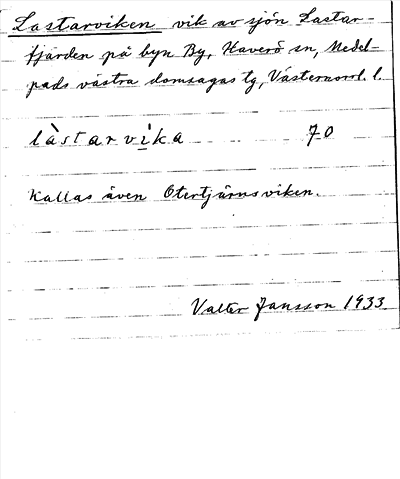 Lastarviken vik av sjön Lastar-
fjärden på byn By, Haverö sn, Medel-
pads västra domsagas tg, Västernorrl. l.
làstarvìka 70
Kallas även Otertjärnsviken.
Valter Jansson 1933.